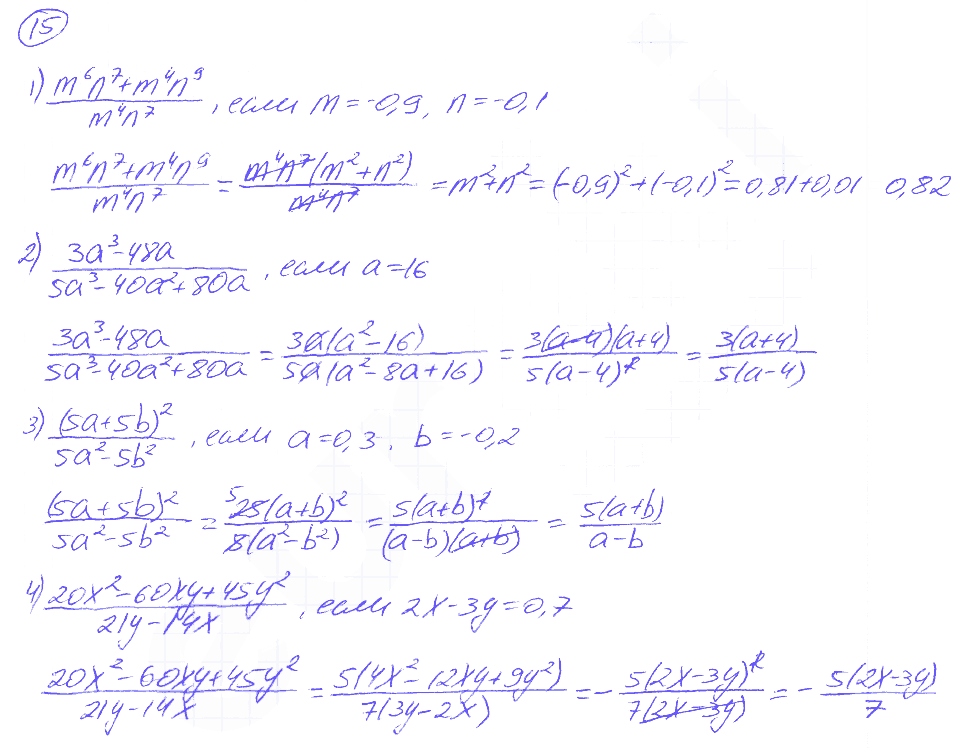 15
1) (m⁶n⁷+m⁴n⁹)/(m⁴n⁷), если m=-0,9, n=-0,1
(m⁶n⁷+m⁴n⁹)/(m⁴n⁷) = (m⁴n⁷(m²+n²))/(m⁴n⁷) = m²+n² = (-0,9)²+(-0,1)² = 0,81+0,01 0,82
2) (3a³-48a)/(5a³-40a²+80a), если a=16
(3a³-48a)/(5a³-40a²+80a) = (3a(a²-16))/(5a(a²-8a+16)) = (3(a-4)(a+4))/(5(a-4)²) = (3(a+4))/(5(a-4))
3) (5a+5b)²/(5a²-5b²), если a=0,3, b=-0,2
(5a+5b)²/(5a²-5b²) = (⁵25(a+b)²)/(5(a²-b²)) = (5(a+b)²)/((a-b)(a+b)) = (5(a+b))/(a-b)
4) (20x²-60xy+45y²)/(21y-14x), если 2x-3y=0,7
(20x²-60xy+45y²)/(21y-14x) = (5(4x²-12xy+9y²))/(7(3y-2x)) = -(5(2x-3y)²)/(7(2x-3y)) = -(5(2x-3y))/7